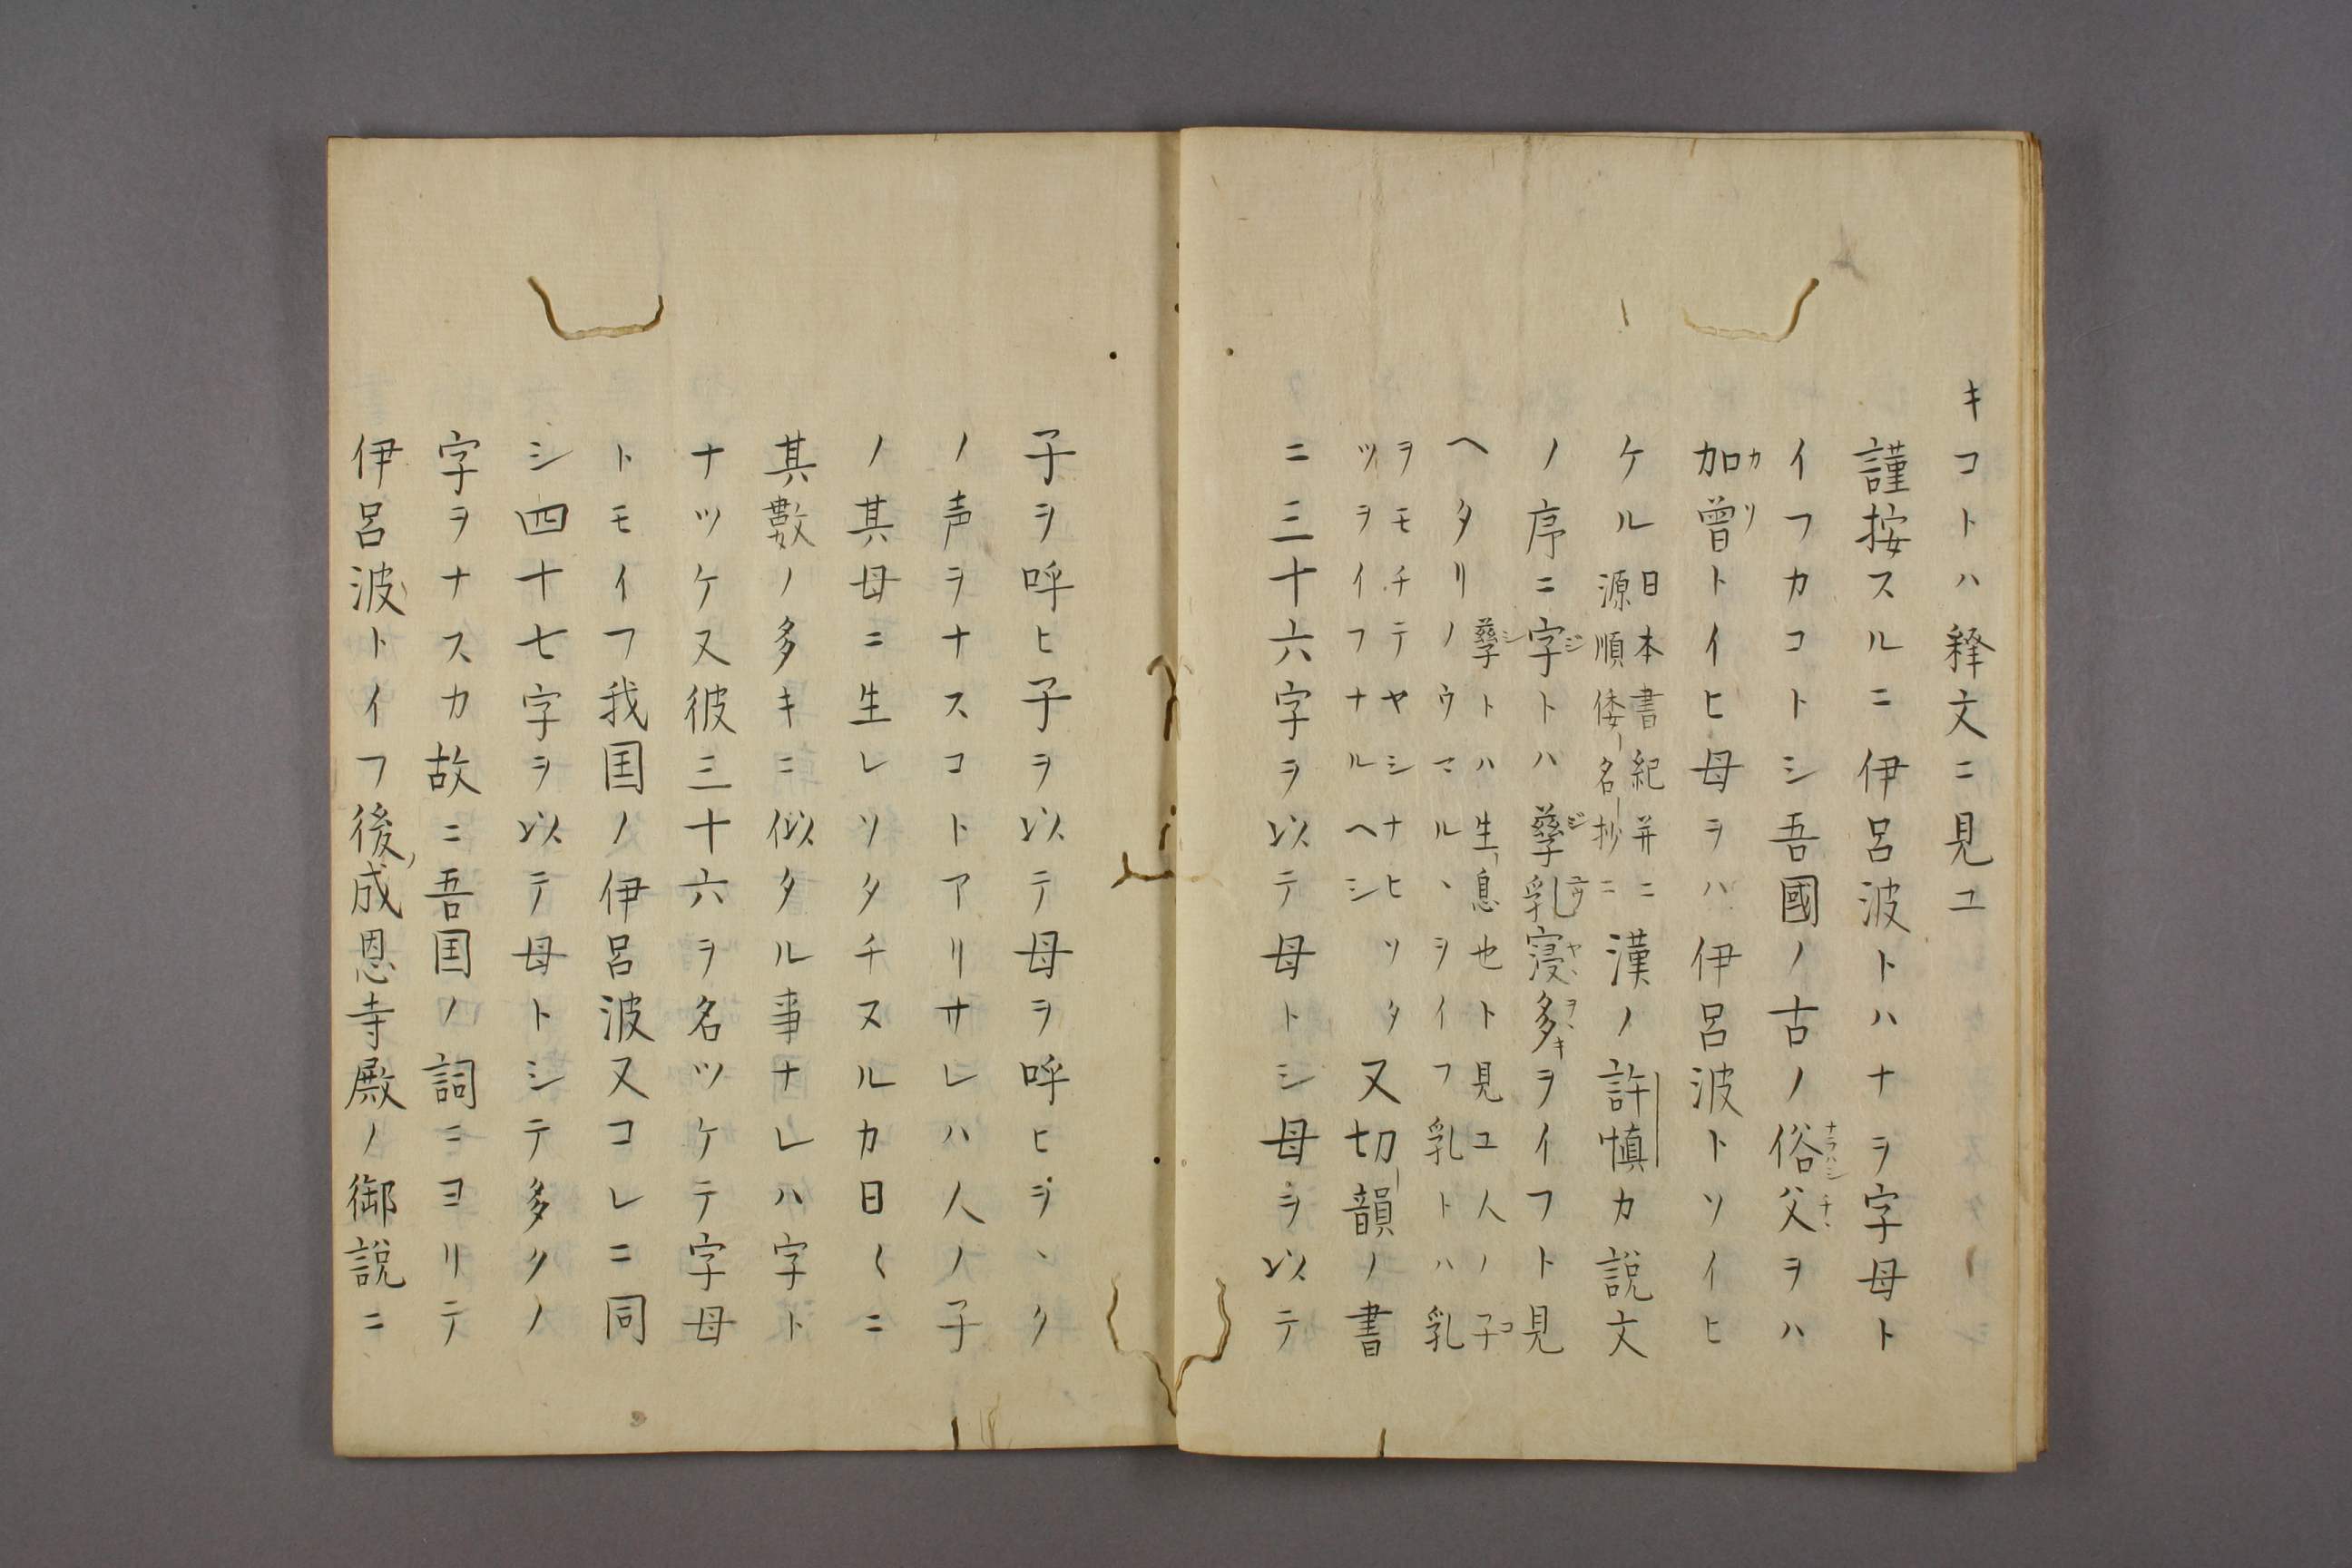 キコトハ釋文ニ見ユ
謹按スルニ伊呂波トハナヲ字母ト
イフカコトシ吾國ノ古ノ俗父ヲハ
ナラハシ
チヽ
加曾トイヒ母ヲハ伊呂波トソイヒ
カソ
ケル
日本書紀并ニ
源順倭名抄ニ
漢ノ許慎カ説文
ノ序ニ字トハ孳乳寖多ヲイフト見
ジ
ジ
ヤヽ
ヲヽキ
ヘタリ
孳トハ生息也ト見ユ人ノ子
シ
コ
ノウマルヽヲイフ乳トハ乳
ヲモチテヤシナヒソタ
ツヲイフナルヘシ
又切韻ノ書
ニ三十六字ヲ以テ母トシ母ヲ以テ
子ヲ呼ヒ子ヲ以テ母ヲ呼ヒヲヽク
ノ声ヲナスコトアリサレハ人ノ子
ノ其母ニ生レソタチヌルカ日〱ニ
其數ノ多キニ似タル事ナレハ字ト
ナツケ又彼三十六ヲ名ツケテ字母
トモイフ我国ノ伊呂波又コレニ同
シ四十七字ヲ以テ母トシテ多クノ
字ヲナスカ故ニ吾国ノ詞ニヨリテ
伊呂波トイフ後成恩寺殿ノ御説ニ